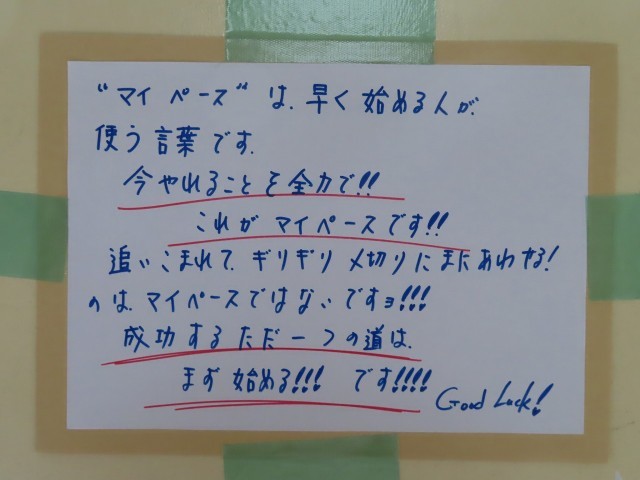 "マイペース"は、早く始める人が、
使う言葉です。
今やれることを全力で!!
これがマイペースです!!
追いこまれて、ギリギリ〆切りにまにあわせる!
のは、マイペースではないですョ!!!
成功するただ一つの道は、
まず始める!!! です!!!!
Good Luck!